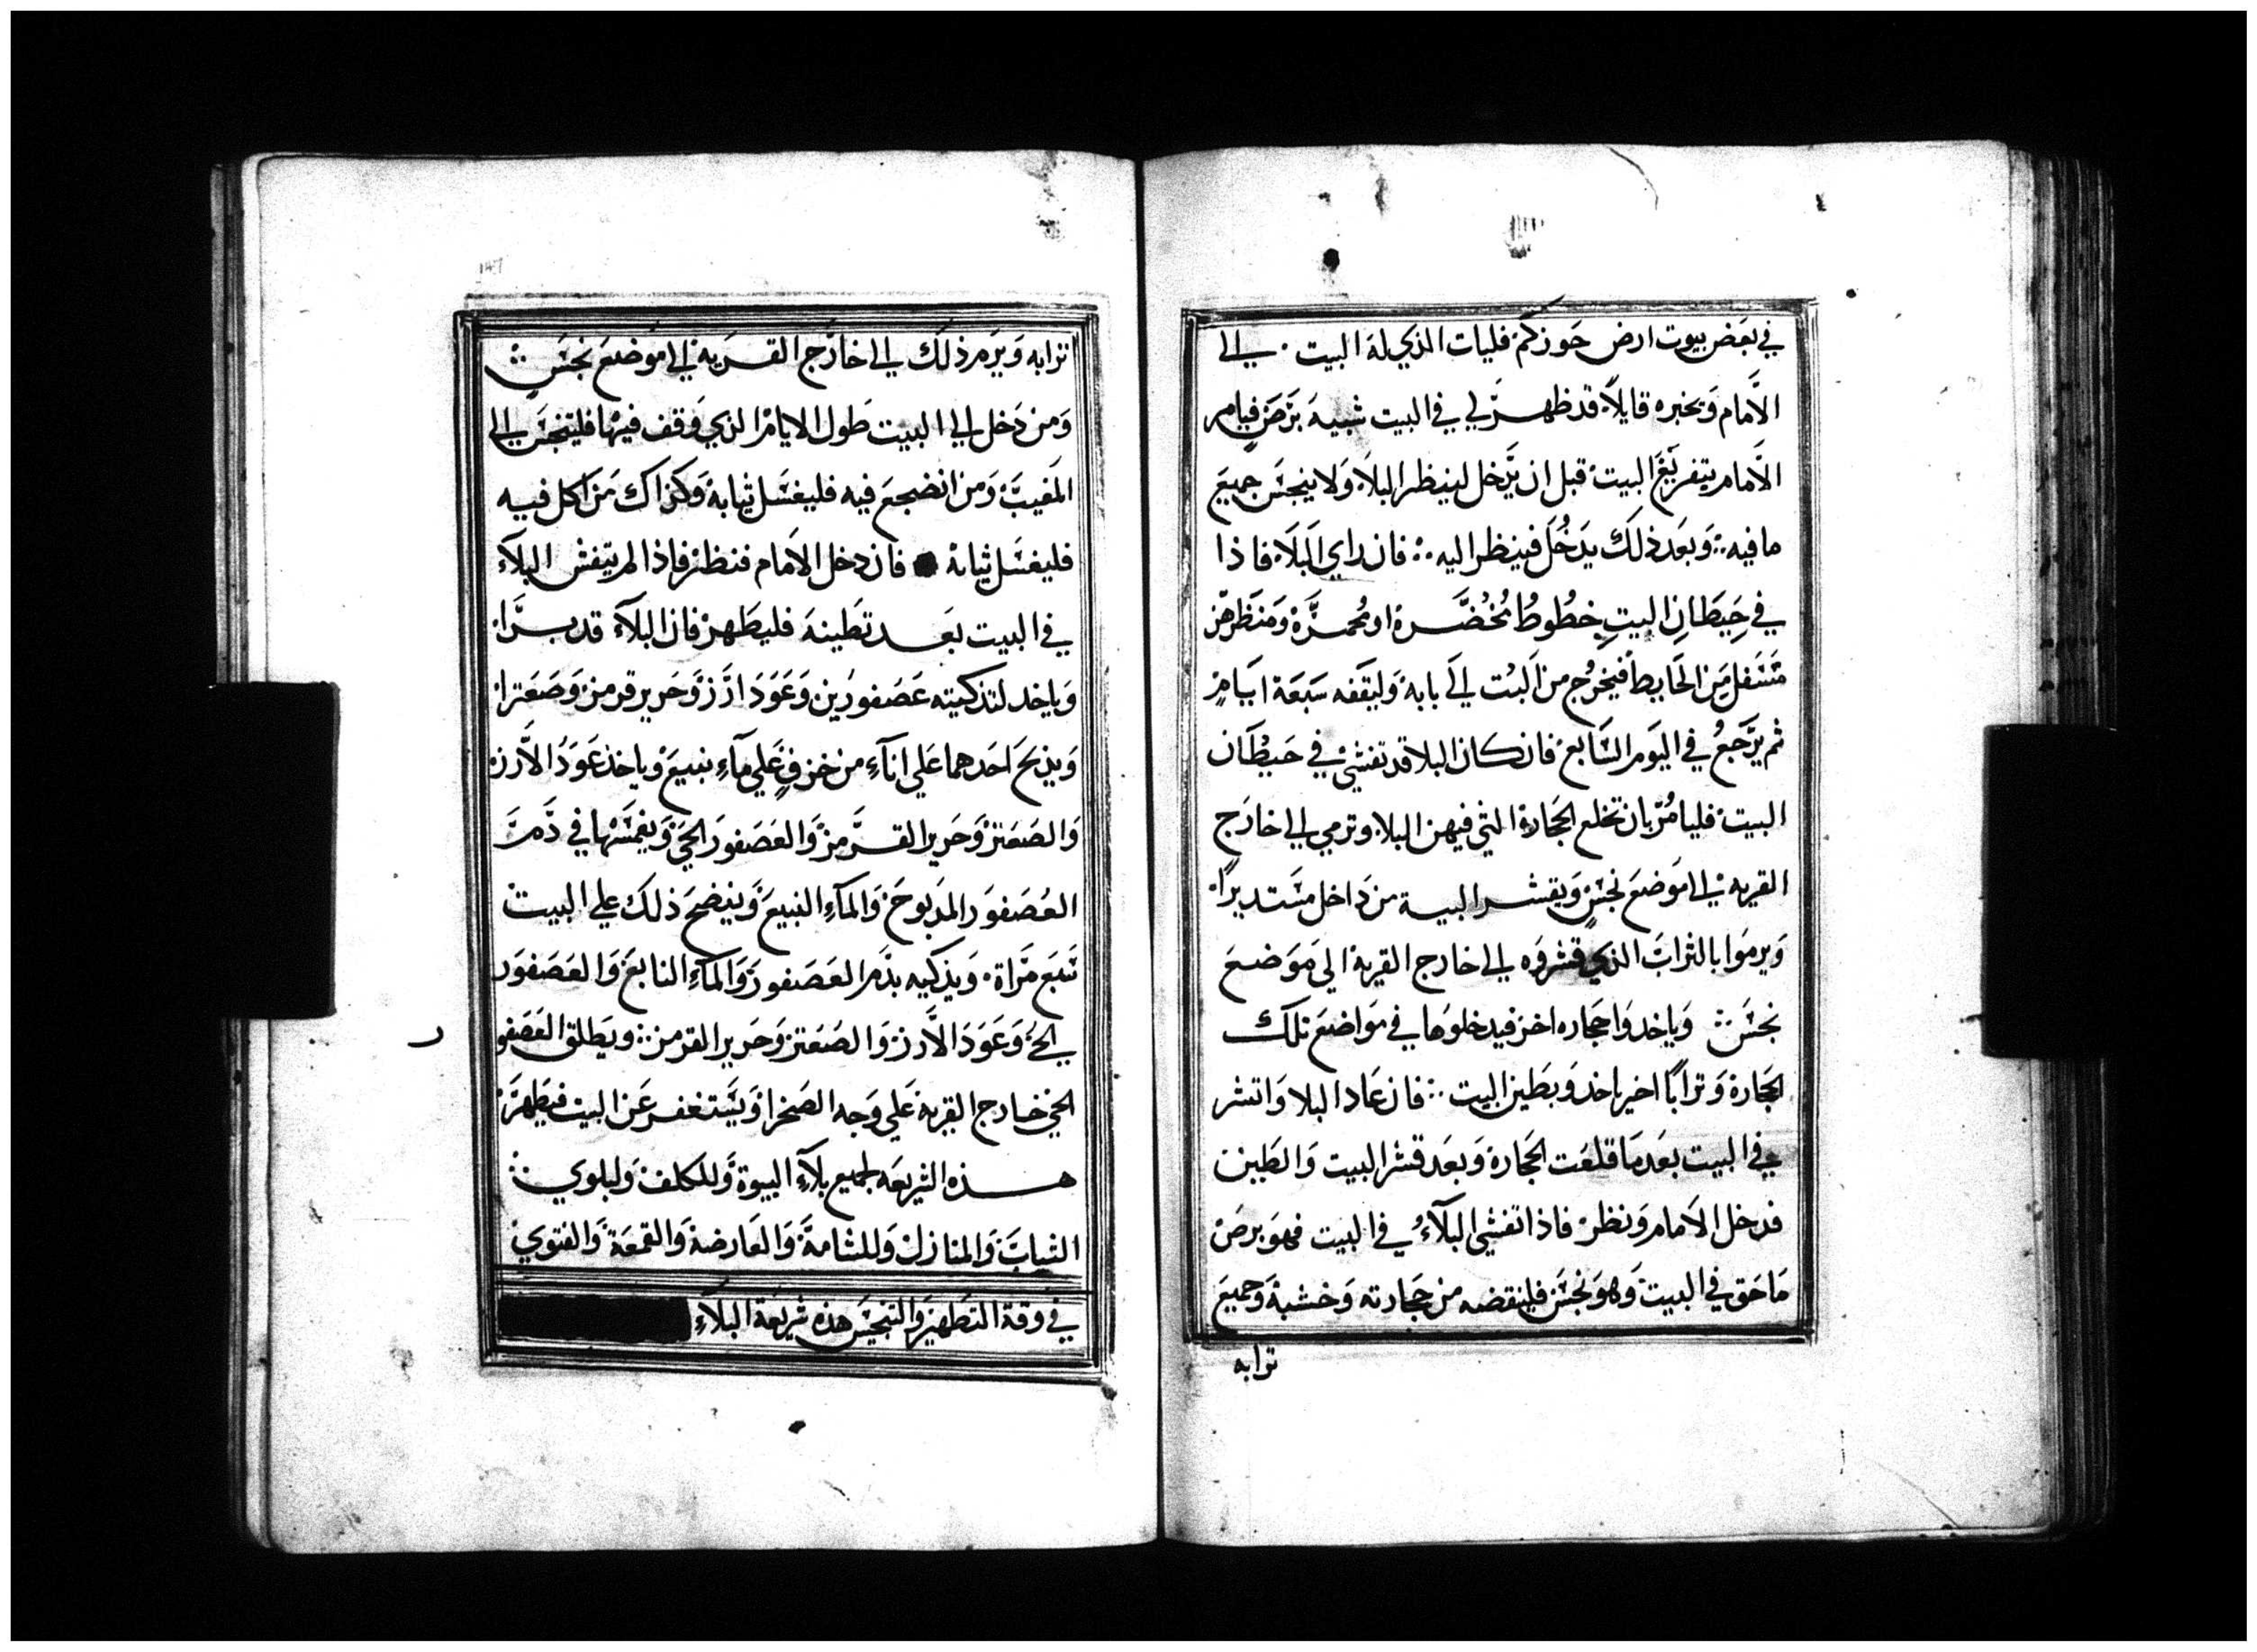 في بعَض بيوت ارض حَوزكم فليات الذي له البيت · الي
الاَمام وَيخبره قايلاً قد ظهرَ لي في البيت شبيهَ برَصَ فيامر
الاَمام بتفريغَ البيت قبل ان يَّدخل لينظر البلاَ وَلا ينجسَ جميعَ
ما فيه ∴ وَبعَد ذلكَ يدَخُلَ فينظر اليه ∴ فان راي البَلاَ فاذا
في حِيَطانِ البيتِ خطُوطُ مُخُضَّرة او مُحمرَّة وَمنَظرهن
مَتَسَفل مَن الحَايط فيخرُج من البيَت الَي بابه وَليَقفه سَبَعَة اياَم
ثم يَّرَجَعُ في اليوَم السَابعَ فان كان البلا قد تفشي في حَيطَان
البيت فليامُر بان تخلع الحجَارة التي فيهن البلا وترمي الي خارَج
القريه الي اموَضعَ نجسٍ وَيقشر البيت من دَاخل مسَتديراً
وَيرموَا بالترابَ الذي قشروَه الي خارج القرية الي مَوَضعَ
نجسَ ∴ وَياخدوَا حجَاره اخر فيدخلوَها في موَاضعَ تلك
الحجَارة وَتراَباً اخير ياخد وَيطَين البيت ∴ فان عَاد البلا وَانتشر
في البيت بعَد مَا قلعَت الحجَارة وَبعَد قشر البيت وَالطَين
فدخل الاَمام وَنظر فاذا تفشي البَلآءُ في البيت فهوَ برصَ
مَاحَق في البيت وَهوَ نجسَ فلينقضه من حجَارته وَخشبة وَجميعَ
ترابه
ترابه وَيرَم ذلكَ الي خارَج القرَية الي اموَضعَ نجسَ ∴
وَمن دَخل الي البيت طَول الايام الذي وَقف فيها فليتنجسَ الي
المَغيبَ وَمن انضجعَ فيه فليغسَل ثيابة وَكذاك مَن اكل فيه
فليغسَل ثيابه ● فان دخل الاَمام فنظر فاذا لم يتفش البلآءَ
في البيت بعَد تطَينهَ فليطَهر فان البلآءَ قد برَا
وَياخد لتذكيته عَصَفورَين وَعَوَدَ ارَز وَحَرير قرمز وَصَعَتر
وَيذبحَ احَدهما عَلي انآءٍ من خزفٍ عَلي مآءٍ نبيعَ وياخذ عَوَدُ الاَرز
وَالصَعَتر وَحَرير القرَّمز وَالعَصَفورَ الحيَ وَيغمسَها في دَّم
العُصَفوَر المدَبوحَ وَالمآءِ النبيعَ وَينضحَ ذلكَ علي البيت
سَبَع مَرَاة وَيذكيه بدَم العَصَفورَ وَالمآءِ النابعَ وَالعَصَفوَر
الحيَ وَعَوَدَ الاَرز وَالصَعَتر وَحَرير القرمز ∴ ويَطلق العَصَفو
ر
الحي خارج القرية عَلي وَجه الصَحرا وَيسَتغفر عَن البيت فيَطَهرَ
هذه الشريعَه لجميع بلآءِ البيوة وَللكلف وَلبلوي ∴
الثيابَ وَالمنازل وَللشامةَ وَالعَارضة وَالقمعَة وَالفتوي
في وَقة التطَهيرَ وَالتنجيسَ هذه شريعَة البلآءِ